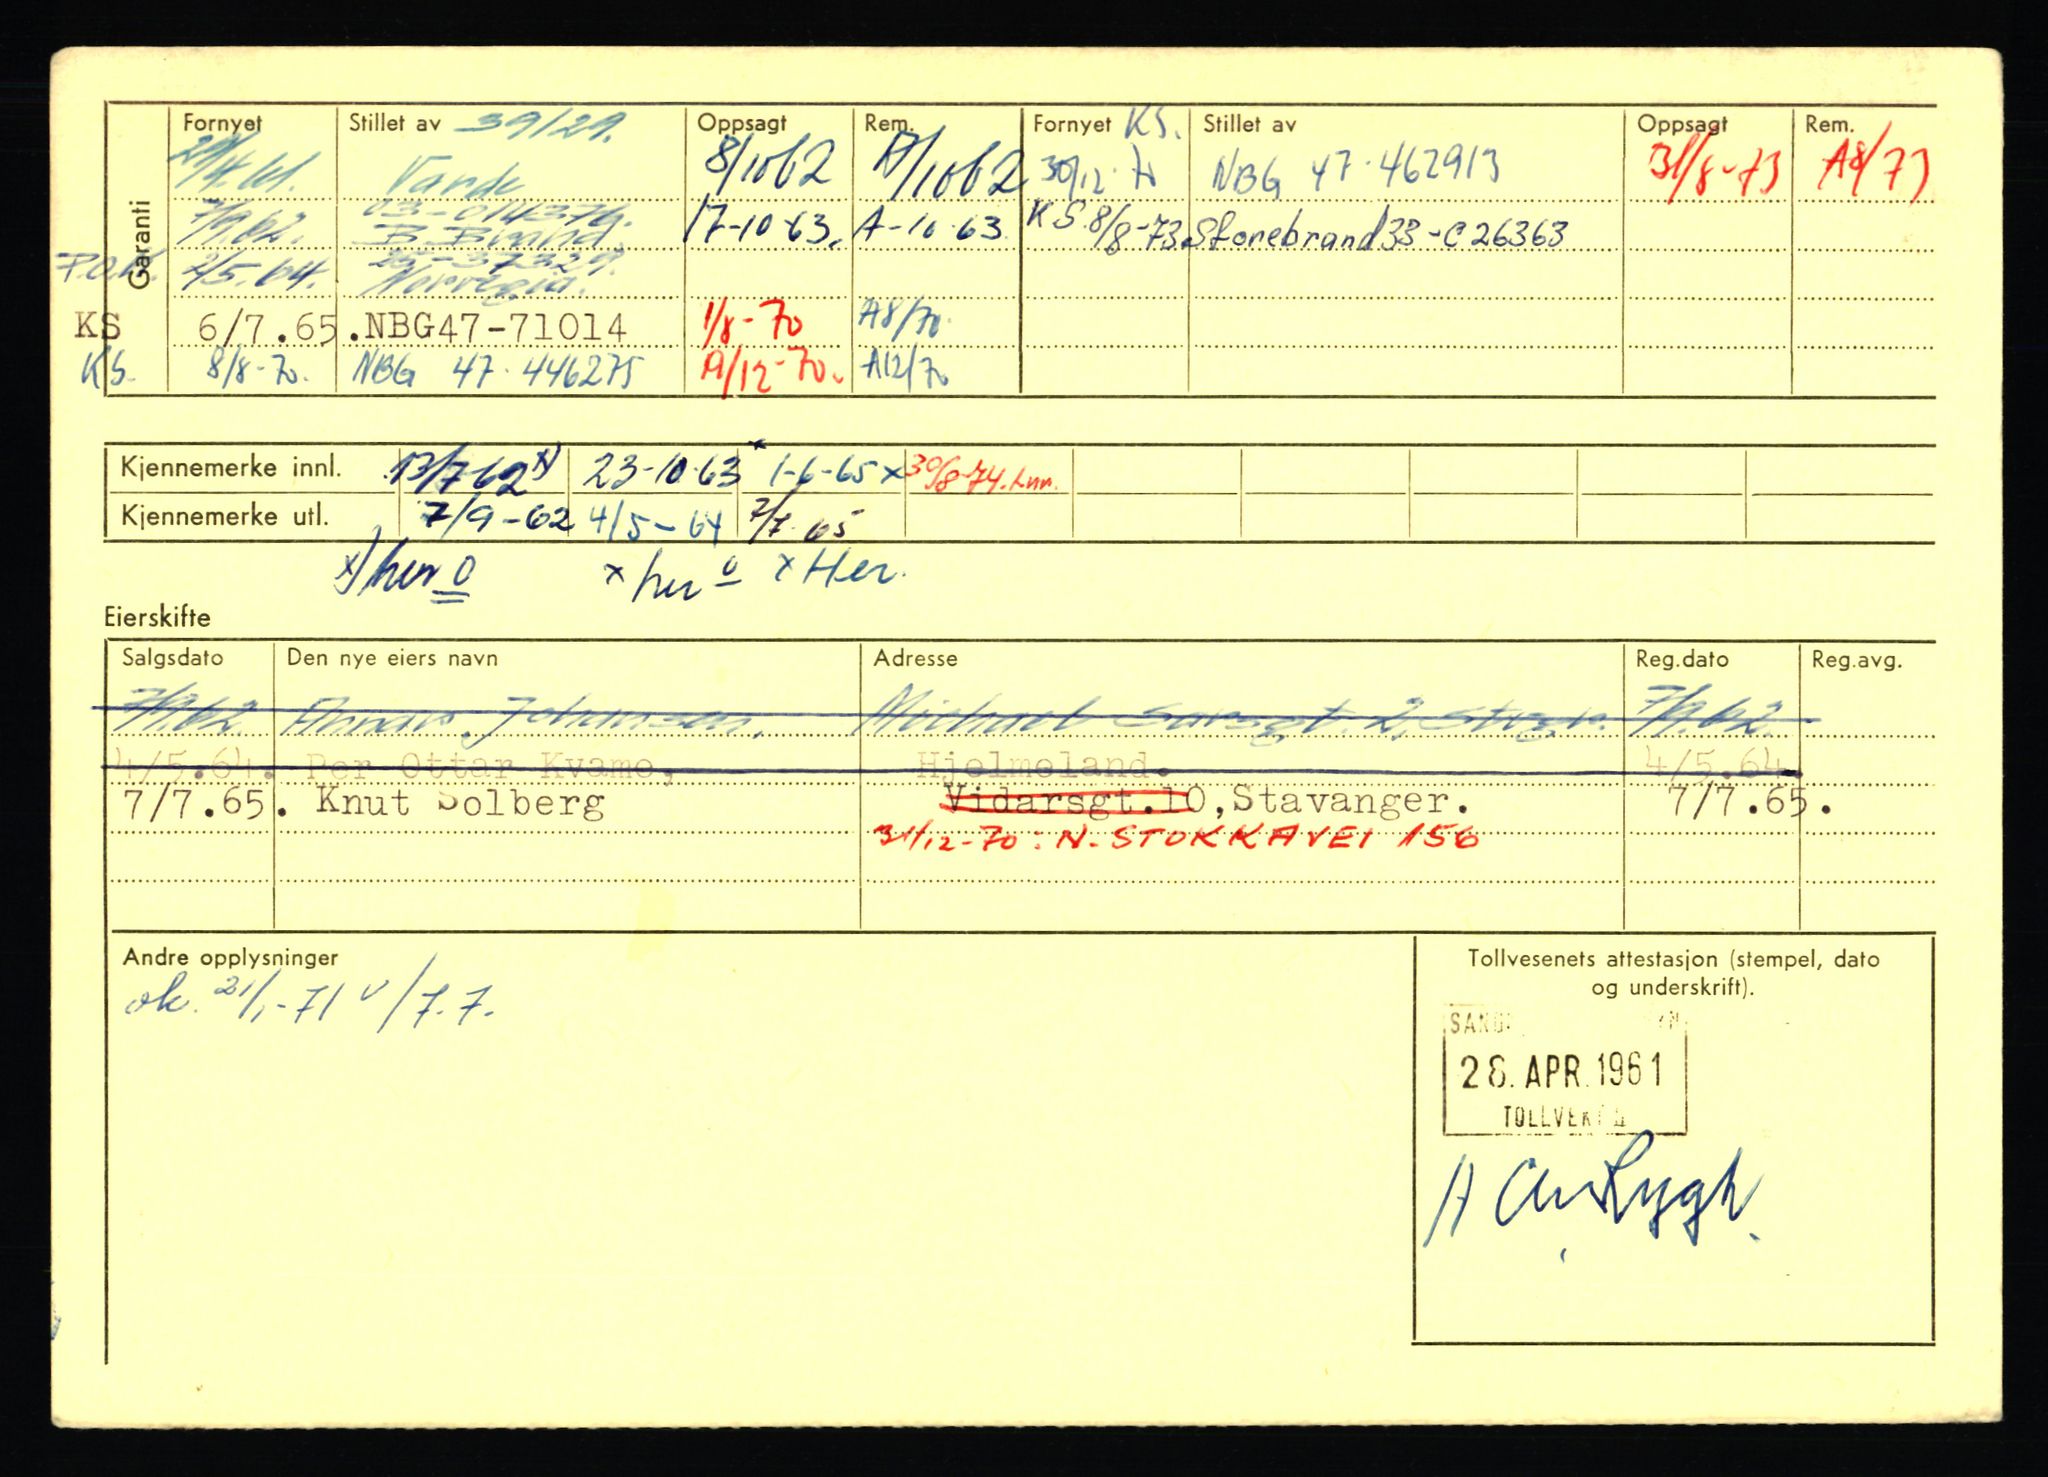 Garanti
Fornyet Stillet av 39/29. Oppsagt Rem. Fornyet KS. Stillet av Oppsagt Rem.
Varde 8/1062 30/12 NBG 47·462913 31/8-73 A8/73
7/9.62. 03-014376. 17-10-63. A-10-63 KS 8/8-73 Storebrand 33-C26363
2/5.64. Norvegia.
KS 6/7.65. NBG47-71014 1/8-70 A8/70
KS. 8/8-70. NBG 47·446275 /12-70. A12/70
Kjennemerke innl. 13/7-62 x) 23-10-63 x 1-6-65 x 30/8-74.
Kjennemerke utl. 7/9-62 4/5-64 7/7-65
x) her 0 x her 0 x Her.
Eierskifte
Salgsdato Den nye eiers navn Adresse Reg.dato Reg.avg.
7/9.62. Johnsen. Michael Sarsgt. 2, Stvgr. 7/9.62.
4/5.64. Per Ottar Kvame, Hjelmeland. 4/5.64.
7/7.65. Knut Solberg Vidarsgt.10, Stavanger. 7/7.65.
31/12-70: N. STOKKAVEI 156
Andre opplysninger
ok. 21/1-71 v/7.7.
Tollvesenets attestasjon (stempel, dato
og underskrift).
28. APR. 1961